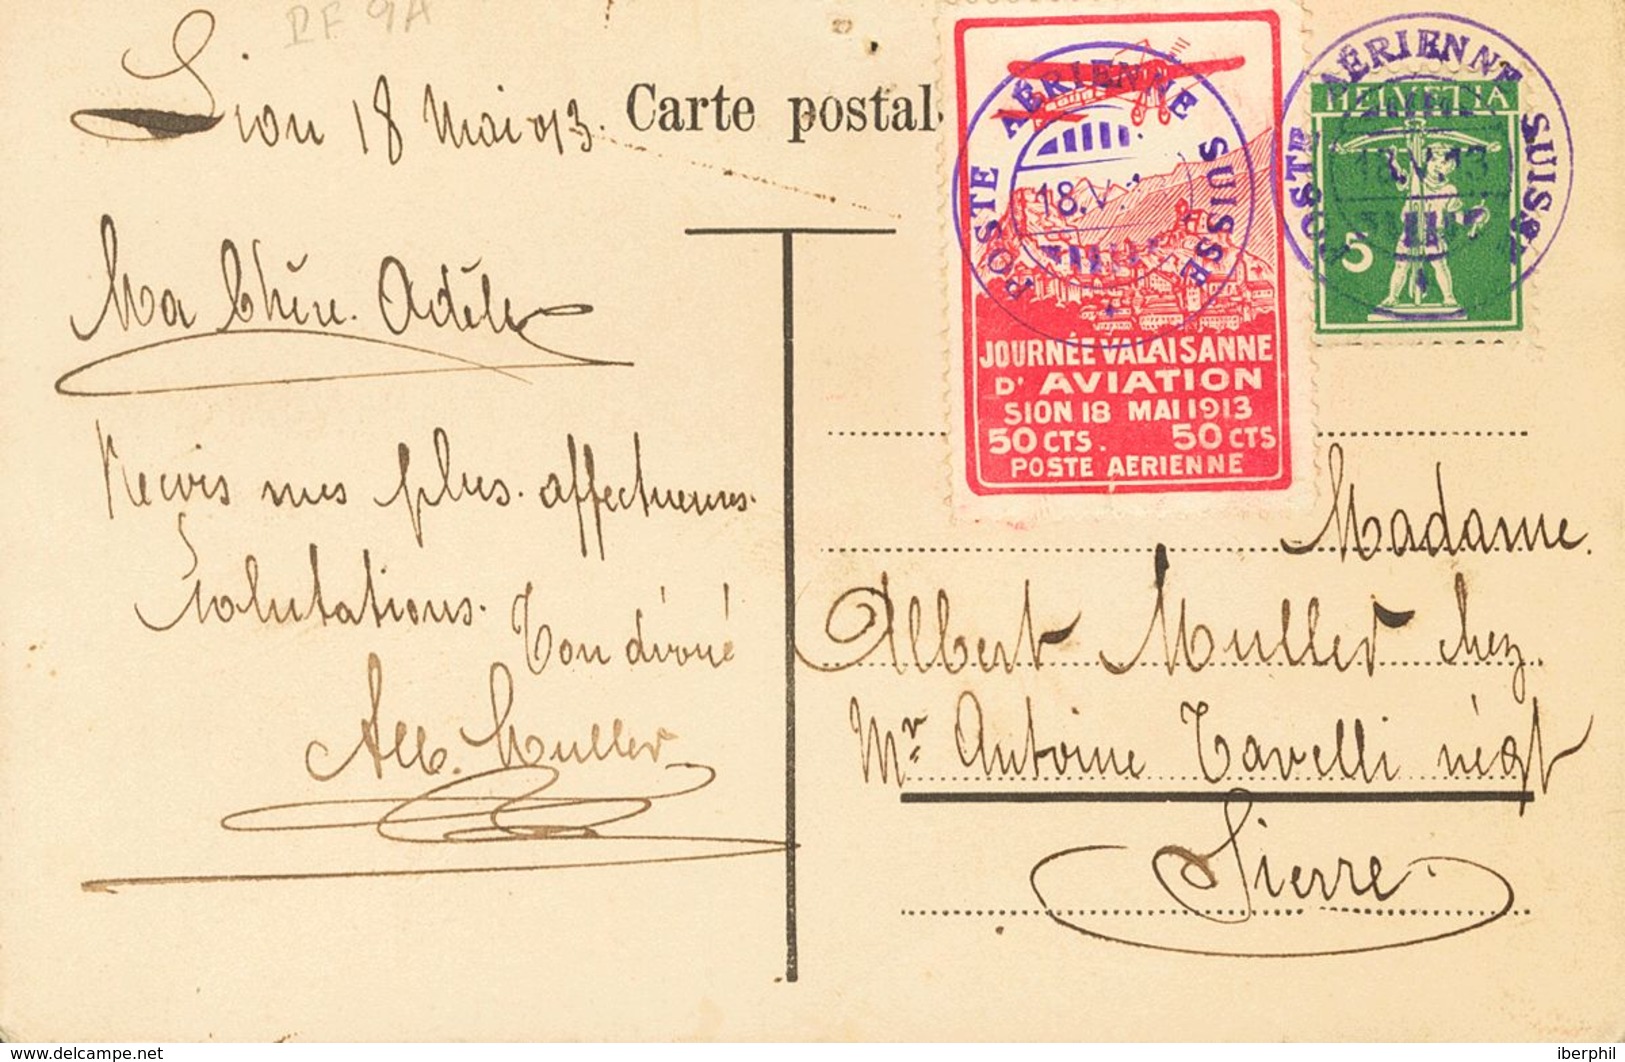 RF 9A
Sion 18 Mai 913.
Carte postal
Ma Chère Adèle
Reçois mes plus affectueuses
Salutations.
Ton dévoué
Alb. Muller
POSTE AÉRIENNE SUISSE
18.V.
JOURNÉE VALAISANNE
D' AVIATION
SION 18 MAI 1913
50 CTS. 50 CTS
POSTE AERIENNE
POSTE AÉRIENNE SUISSE
HELVETIA
18.V.13
5
Madame
Albert Muller chez
Mr Antoine Tavelli négt
Sierre.
www.delcampe.net
iberphil